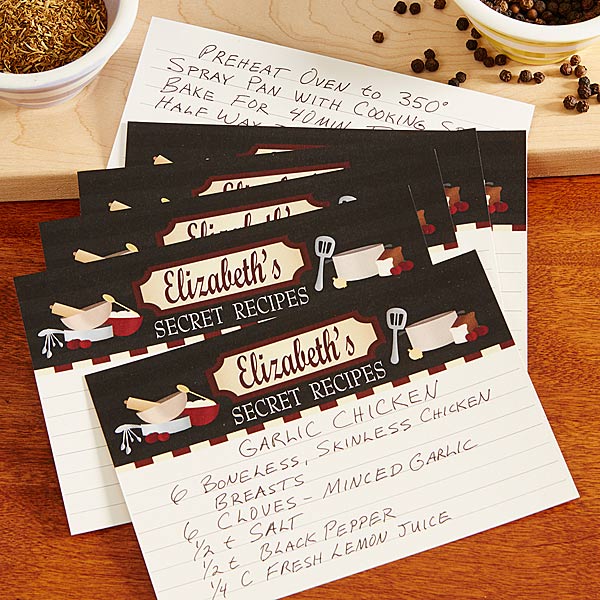 PREHEAT OVEN TO 350°
SPRAY PAN WITH COOKING
BAKE FOR 40MIN
HALF WAY
Elizabeth's
SECRET RECIPES
Elizabeth's
SECRET RECIPES
GARLIC CHICKEN
6 BONELESS, SKINLESS CHICKEN
BREASTS
6 CLOVES - MINCED GARLIC
1/2 t SALT
1/2 t BLACK PEPPER
1/4 C FRESH LEMON JUICE